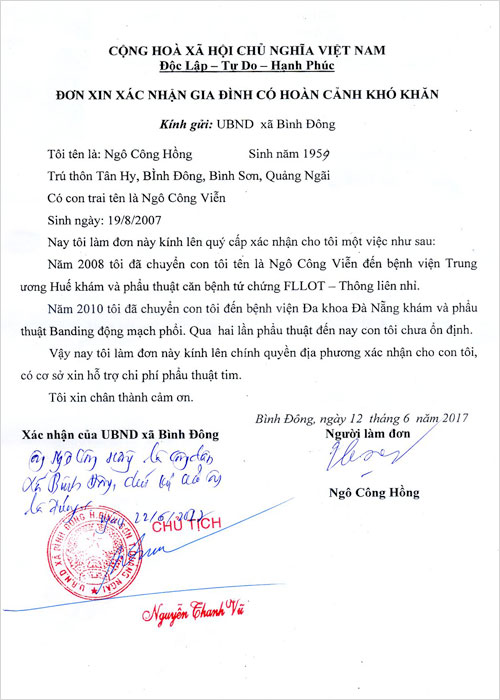 CỘNG HOÀ XÃ HỘI CHỦ NGHĨA VIỆT NAM
Độc Lập – Tự Do – Hạnh Phúc
ĐƠN XIN XÁC NHẬN GIA ĐÌNH CÓ HOÀN CẢNH KHÓ KHĂN
Kính gửi: UBND xã Bình Đông
Tôi tên là: Ngô Công Hồng Sinh năm 1959
Trú thôn Tân Hy, BÌnh Đông, Bình Sơn, Quảng Ngãi
Có con trai tên là Ngô Công Viễn
Sinh ngày: 19/8/2007
Nay tôi làm đơn này kính lên quý cấp xác nhận cho tôi một việc như sau:
Năm 2008 tôi đã chuyển con tôi tên là Ngô Công Viễn đến bệnh viện Trung
ương Huế khám và phẩu thuật căn bệnh tứ chứng FLLOT – Thông liên nhỉ.
Năm 2010 tôi đã chuyển con tôi đến bệnh viện Đa khoa Đà Nẵng khám và phẩu
thuật Banding động mạch phổi. Qua hai lần phẩu thuật đến nay con tôi chưa ổn định.
Vậy nay tôi làm đơn này kính lên chính quyền địa phương xác nhận cho con tôi,
có cơ sở xin hỗ trợ chi phí phẩu thuật tim.
Tôi xin chân thành cảm ơn.
Bình Đông, ngày 12 tháng 6 năm 2017
Xác nhận của UBND xã Bình Đông Người làm đơn
ông Ngô Công Hồng là công dân
xã Bình Đông, chữ ký của ông
là đúng.
ngày 22/6/2017
CHỦ TỊCH
Ngô Công Hồng
U.B.N.D XÃ BÌNH ĐÔNG H.BÌNH SƠN T.QUẢNG NGÃI
Nguyễn Thanh Vũ